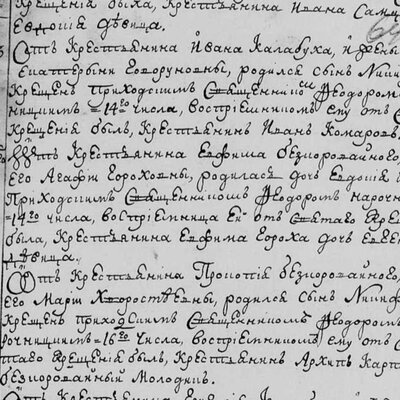 Крещенія была, Крестьянина Ивана Сами
Евдокія дѣвица.
Отъ Крестьянина Ивана Калабуха, и жены
Екатерины Говоруновны, родился сынъ
Крещенъ приходскимъ Священникомъ Ѳеодоромъ
=14го числа, воспріемникомъ ему отъ С
Крещенія былъ, Крестьянинъ Иванъ Комаровъ.
Отъ Крестьянина Евфима Безпоровайного,
Его Агафіи Гороховны, родилась дочь Евдокія
Приходскимъ Священникомъ Ѳеодоромъ нароч
=14го числа, воспріемница Ей отъ Святаго Кре
была, Крестьянина Евфима Гороха дочь Евге
дѣвица.
Отъ Крестьянина Прокопія Безпоровайного,
Его Маріи Хворостевны, родился сынъ
Крещенъ приходскимъ Священникомъ Ѳеодоромъ
рочницкимъ =16го числа, воспріемникомъ ему отъ С
таго Крещенія былъ, Крестьянинъ Архипъ Карп
безпоровайный Молодикъ.
Отъ Крестьянина